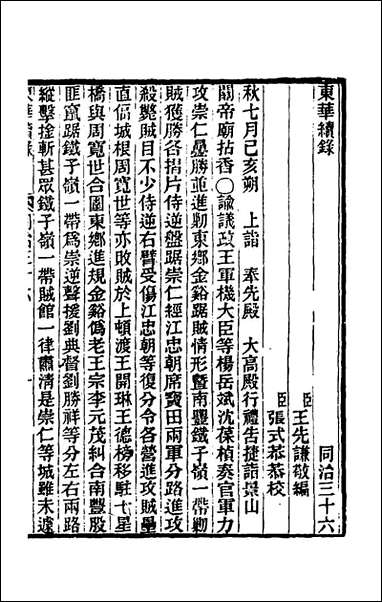 東華續錄　同治三十六
臣王先謙敬編
臣張式恭恭校
秋七月己亥朔　上詣　奉先殿　大高殿行禮告捷詣景山
關帝廟拈香○諭議政王軍機大臣等楊岳斌沈葆楨奏官軍力
攻崇仁壘勝並進勦東鄉金谿踞賊情形暨南豐鐵子嶺一帶勦
賊獲勝各摺片侍逆盤踞崇仁經江忠朝席寶田兩軍分路進攻
殺斃賊目不少侍逆右臂受傷江忠朝等復分令各營進攻賊壘
直偪城根周寬世等亦敗賊於上頓渡王開琳王德榜移駐七星
橋與周寬世合圍東鄉進規金谿僞老王宗李元茂糾合南豐股
匪竄踞鐵子嶺一帶爲崇逆聲援劉典督劉勝祥等分左右兩路
縱擊擒斬甚眾鐵子嶺一帶賊館一律肅清是崇仁等城雖未遽